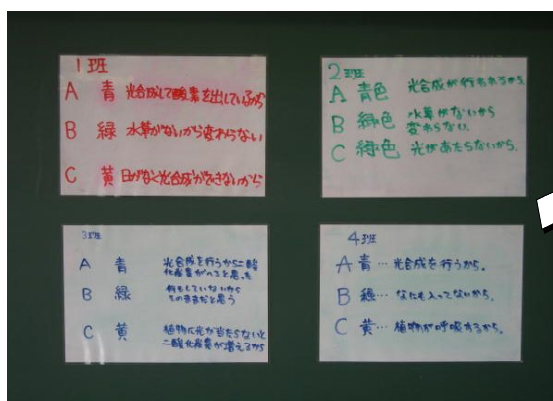 1班
A 青 光合成して酸素を出しているから
B 緑 水草がないから変わらない
C 黄 日がなく光合成ができないから
2班
A 青色 光合成が行われるから
B 緑色 水草がないから
変わらない。
C 緑色 光があたらないから。
3班
A 青 光合成を行うから二酸
化炭素がへると思った
B 緑 何もしていないから
そのままだと思う
C 黄 植物に光が当たらないと
二酸化炭素が増えるから
4班
A 青…光合成を行うから。
B 緑…なにも入ってないから。
C 黄…植物が呼吸するから。